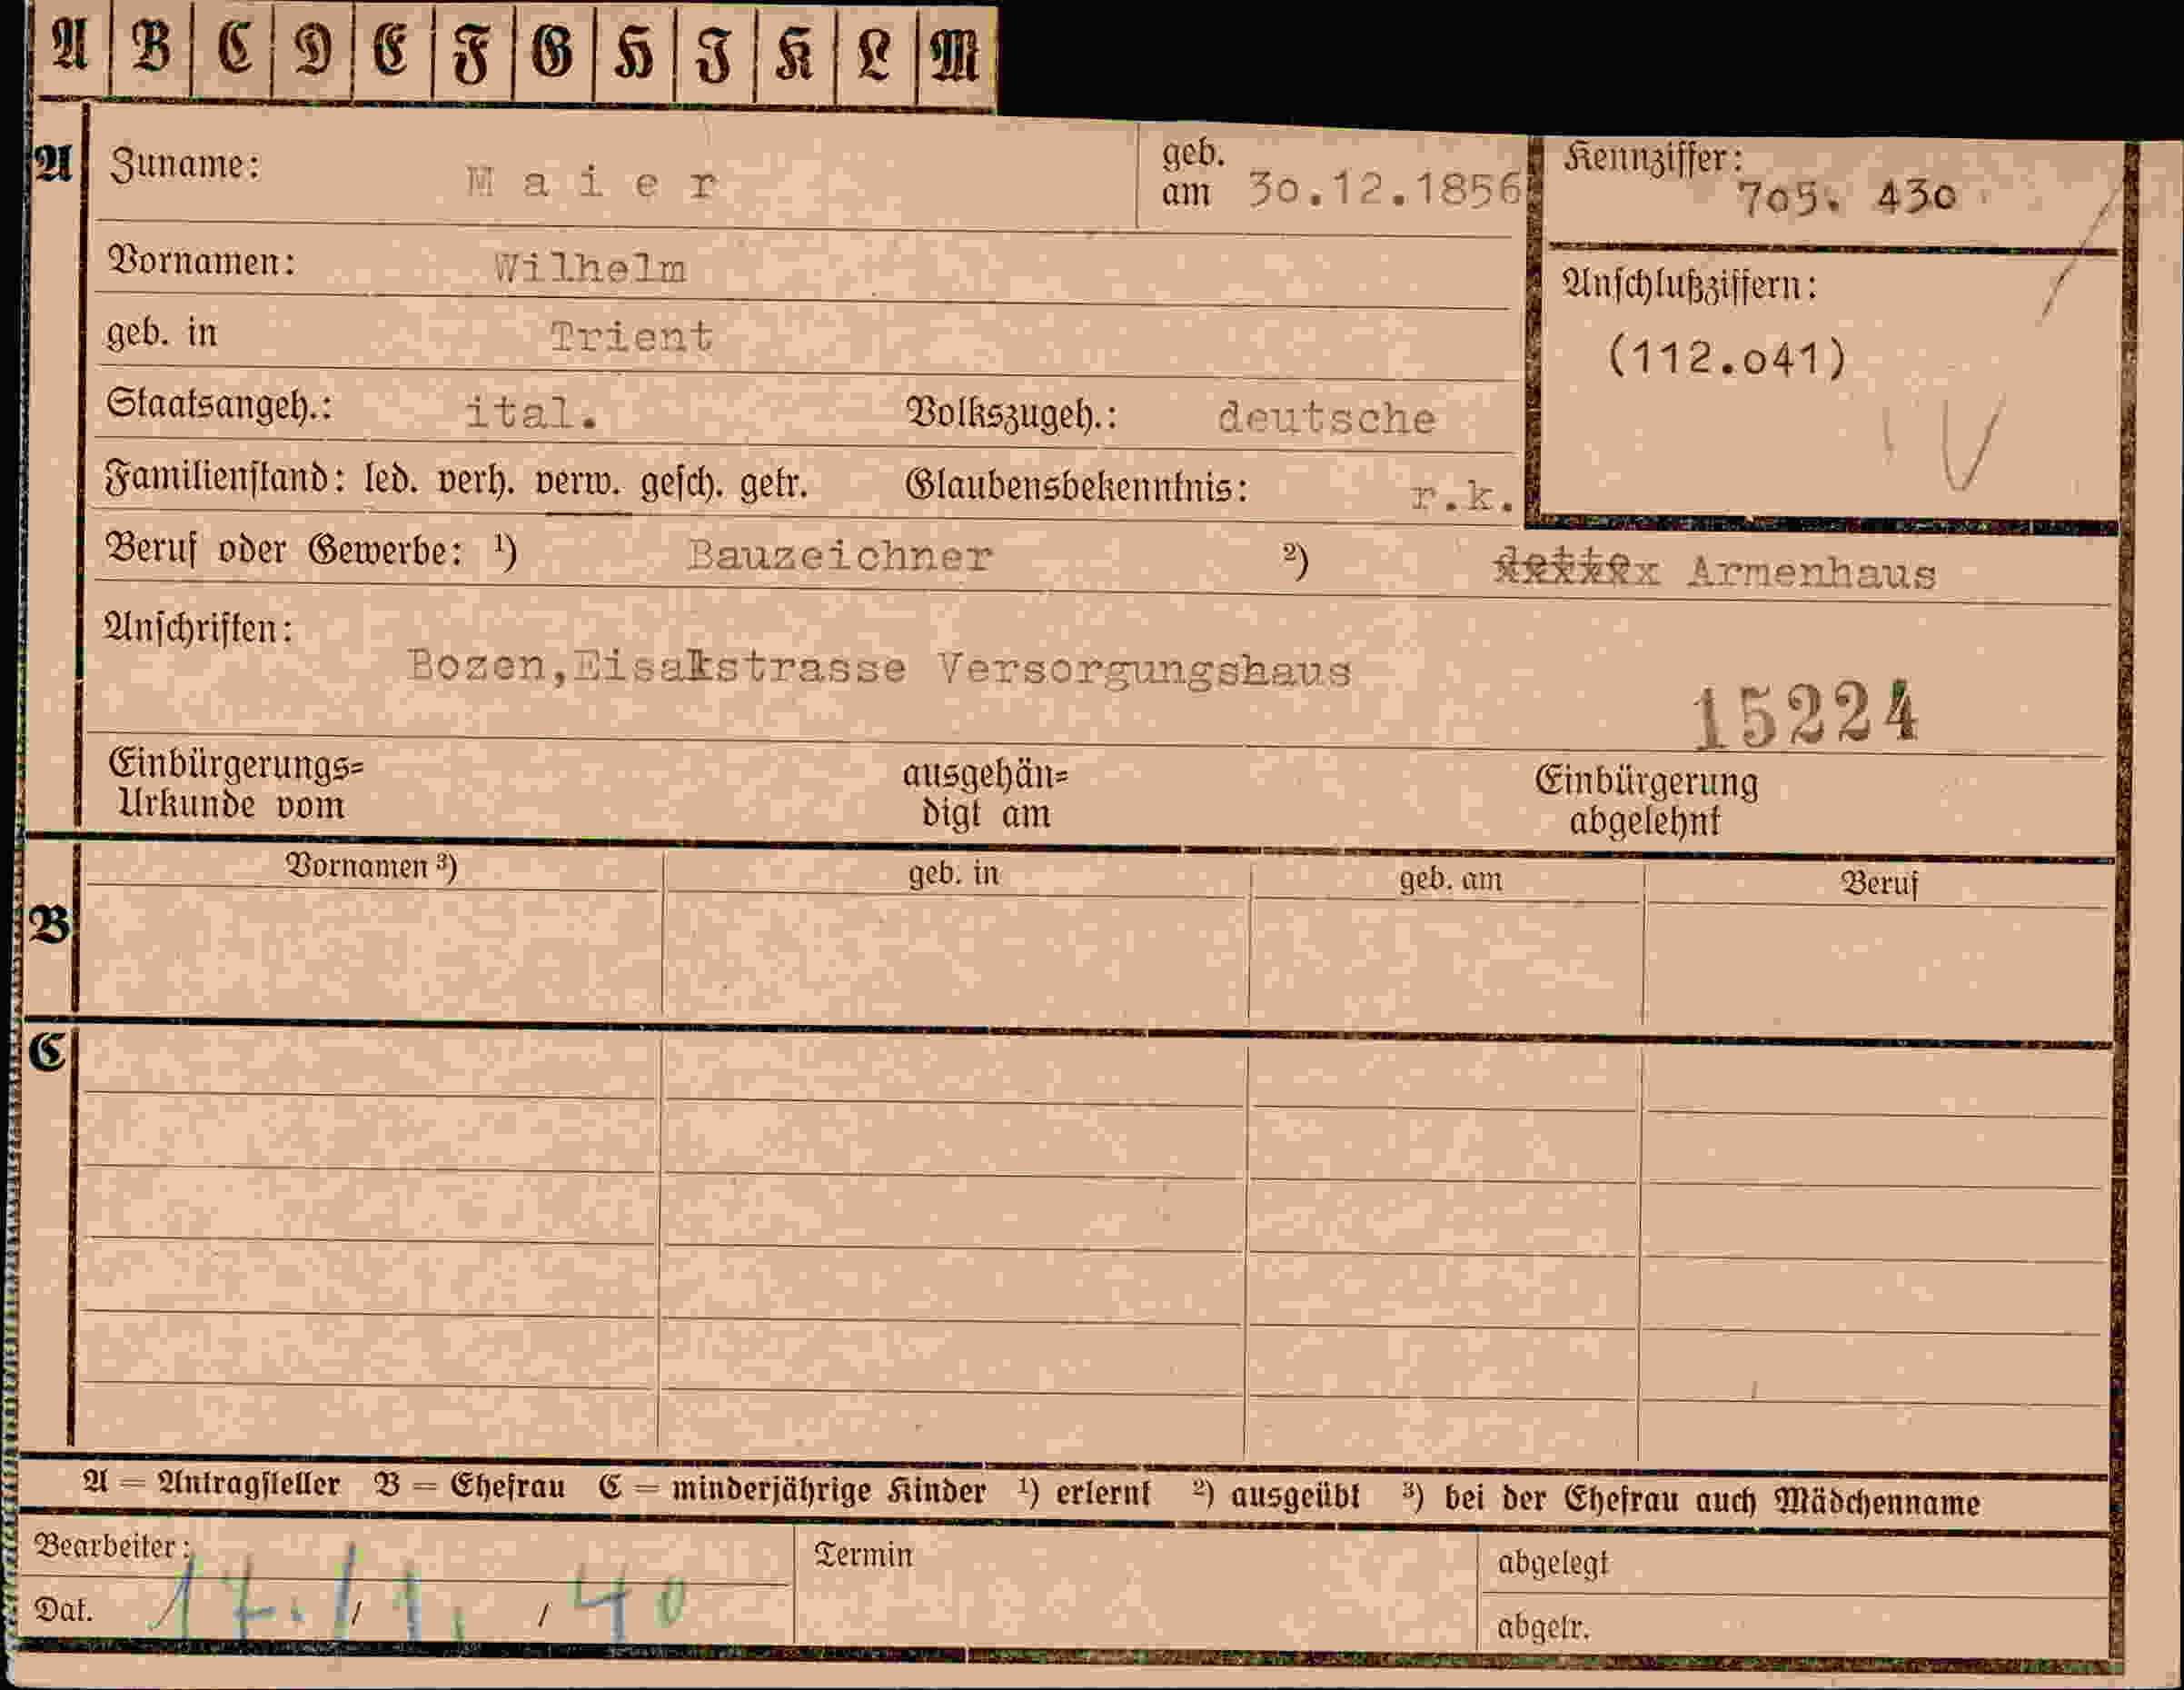 A B C D E F G H I K L M
A Zuname: Maier geb. am 30.12.1856 Kennziffer: 705. 430
Vornamen: Wilhelm
geb. in Trient
Anschlußziffern: (112.o41)
Staatsangeh.: ital. Volkszugeh.: deutsche
Familienstand: led. verh. verw. gesch. getr. Glaubensbekenntnis: r.k.
Beruf oder Gewerbe: ¹) Bauzeichner ²) Armenhaus
Anschriften:
Bozen,Eisakstrasse Versorgungshaus
15224
Einbürgerungs=
Urkunde vom
ausgehän=
digt am
Einbürgerung
abgelehnt
Vornamen ³) geb. in geb. am Beruf
B
C
A = Antragsteller B = Ehefrau C = minderjährige Kinder ¹) erlernt ²) ausgeübt ³) bei der Ehefrau auch Mädchenname
Bearbeiter: Termin abgelegt
Dat. 17./1. / 40 abgetr.